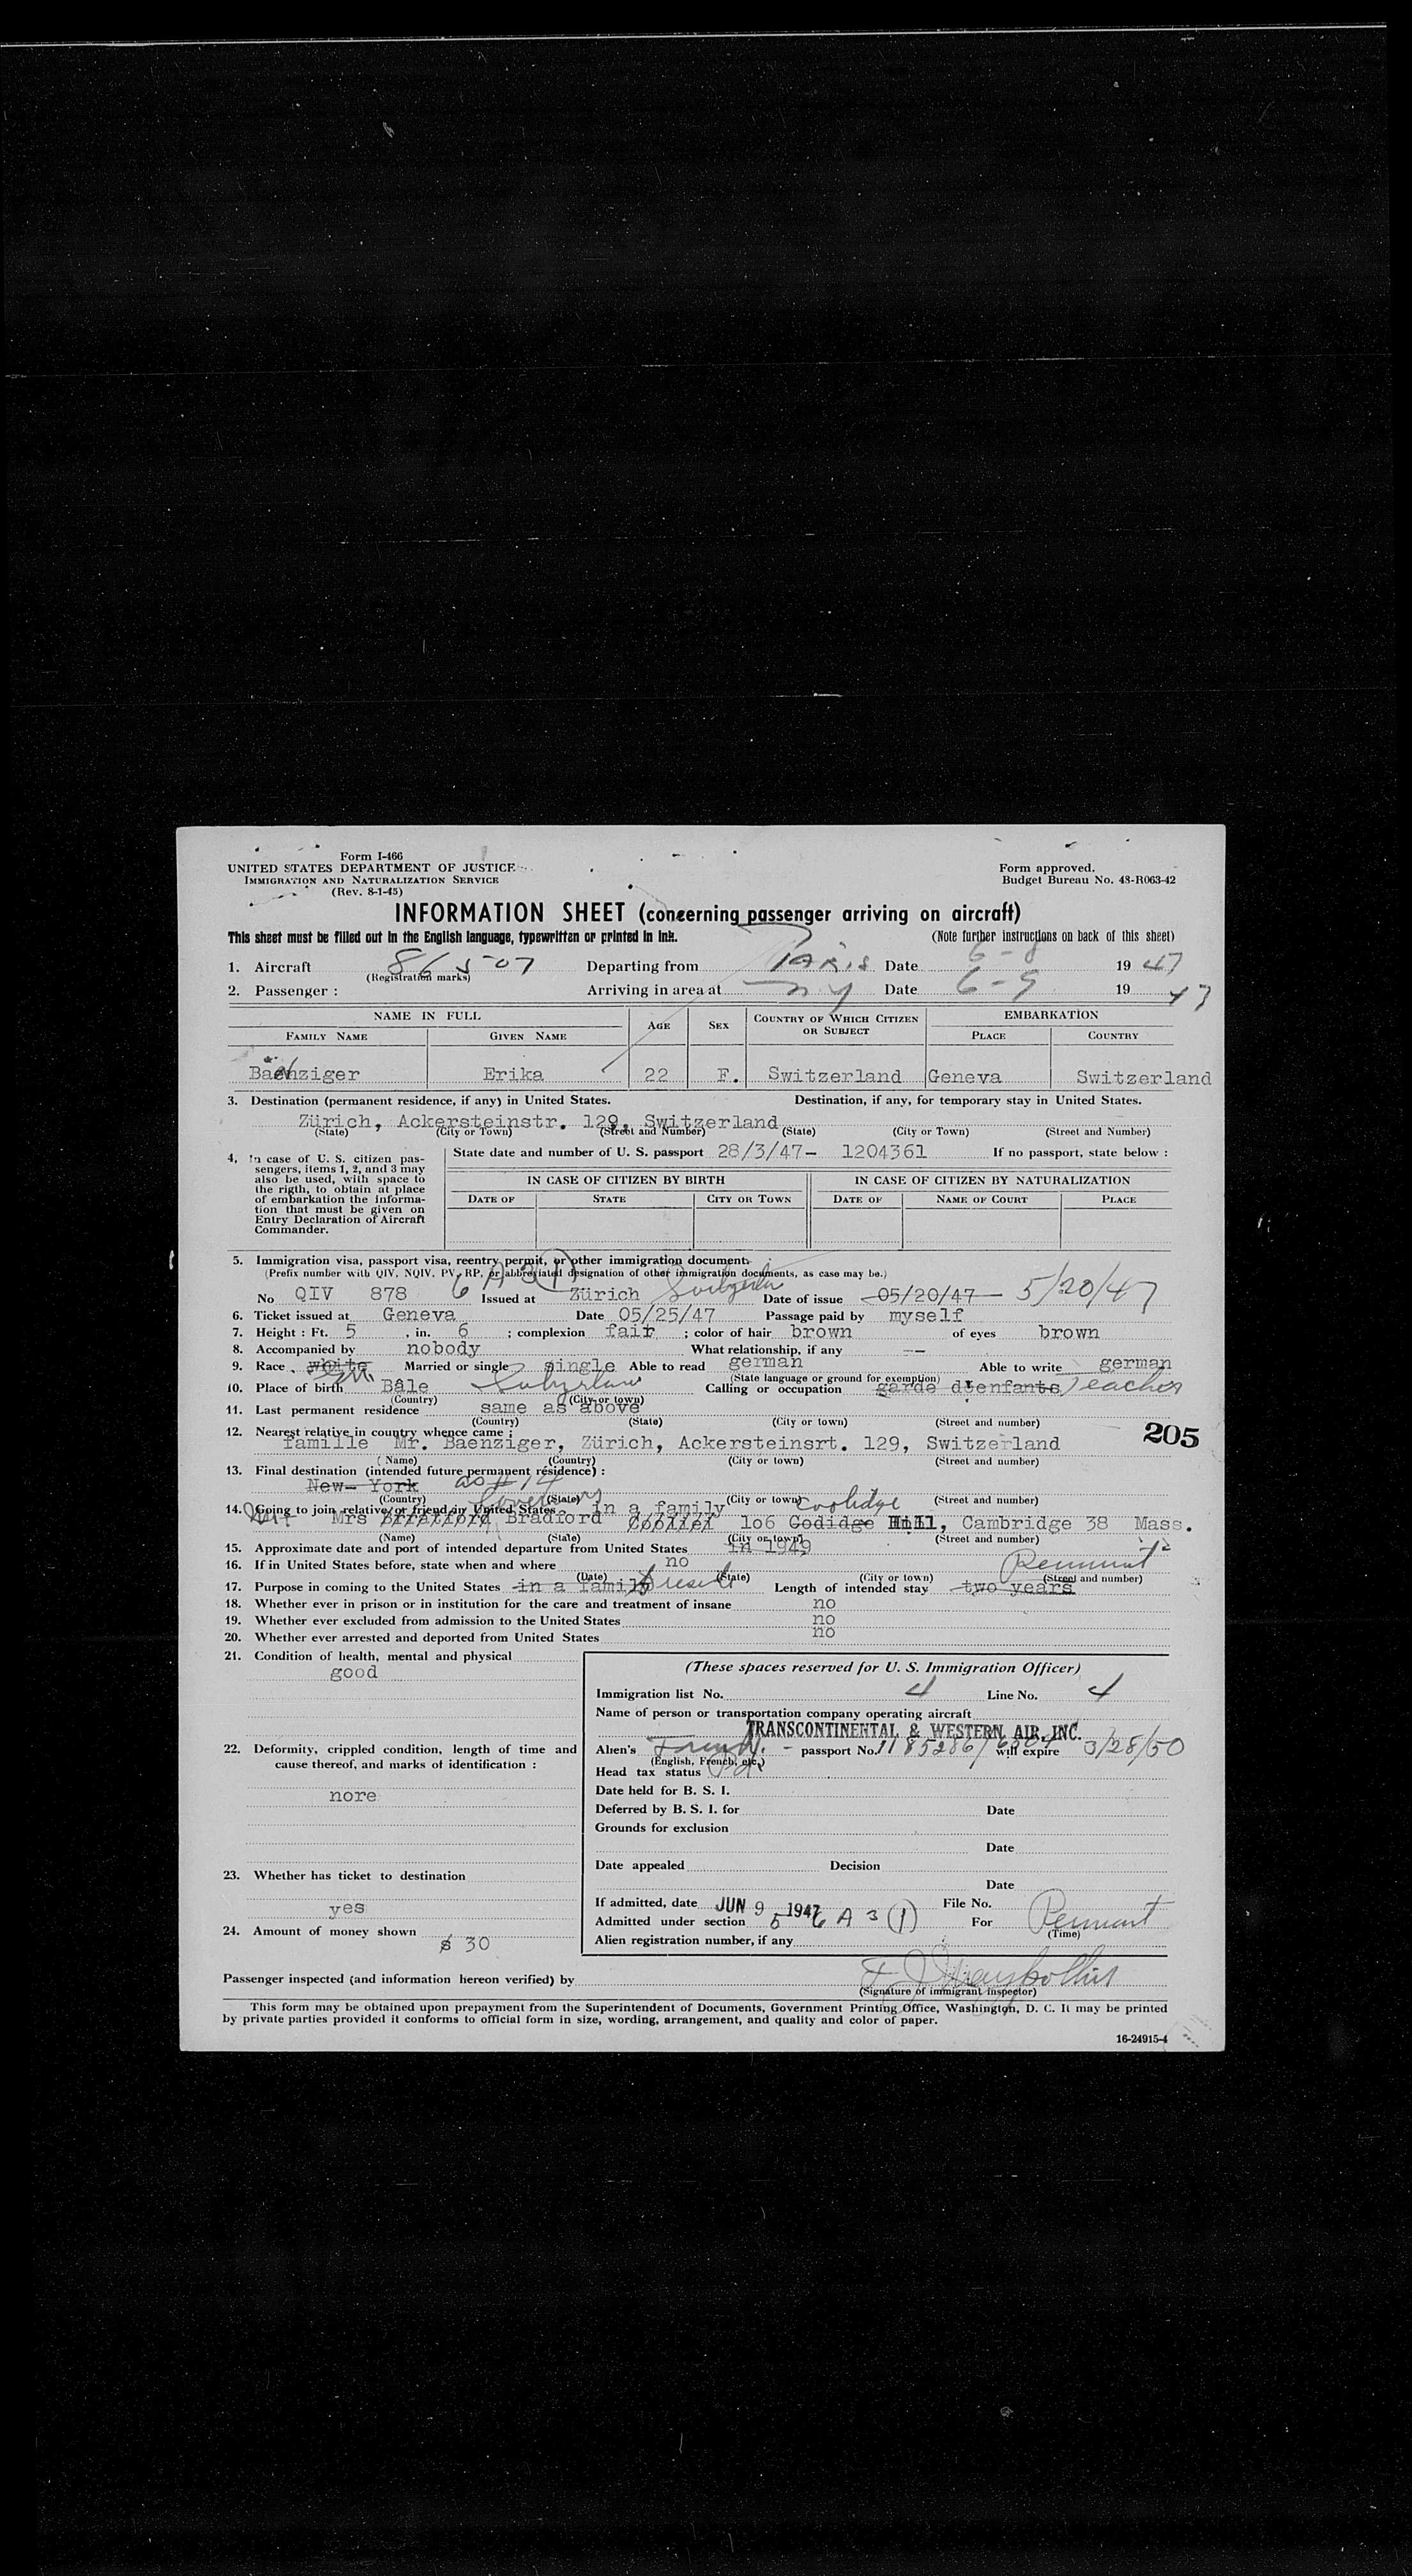 Form I-466
UNITED STATES DEPARTMENT OF JUSTICE
IMMIGRATION AND NATURALIZATION SERVICE
(Rev. 8-1-45)
Form approved.
Budget Bureau No. 43-R063-42
INFORMATION SHEET (concerning passenger arriving on aircraft)
This sheet must be filled out in the English language, typewritten or printed in ink.
(Note further instructions on back of this sheet)
1. Aircraft 86507 Departing from Paris Date 6-8 1947
(Registration marks)
2. Passenger : Arriving in area at NY Date 6-9 1947
NAME IN FULL AGE SEX COUNTRY OF WHICH CITIZEN OR SUBJECT EMBARKATION
FAMILY NAME GIVEN NAME PLACE COUNTRY
Baenziger Erika 22 F. Switzerland Geneva Switzerland
3. Destination (permanent residence, if any) in United States. Destination, if any, for temporary stay in United States.
Zürich, Ackersteinstr. 129, Switzerland
(State) (City or Town) (Street and Number) (State) (City or Town) (Street and Number)
4. In case of U. S. citizen passengers, items 1, 2, and 3 may also be used, with space to the rigth, to obtain at place of embarkation the information that must be given on Entry Declaration of Aircraft Commander.
State date and number of U. S. passport 28/3/47- 1204361 If no passport, state below :
IN CASE OF CITIZEN BY BIRTH IN CASE OF CITIZEN BY NATURALIZATION
DATE OF STATE CITY OR TOWN DATE OF NAME OF COURT PLACE
5. Immigration visa, passport visa, reentry permit, or other immigration document.
(Prefix number with QIV, NQIV, PV, RP, or abbreviated designation of other immigration documents, as case may be.)
6 A 3 (1)
No QIV 878 Issued at Zürich Switzerland Date of issue 05/20/47 5/20/47
6. Ticket issued at Geneva Date 05/25/47 Passage paid by myself
7. Height : Ft. 5 , in. 6 ; complexion fair ; color of hair brown of eyes brown
8. Accompanied by nobody What relationship, if any --
9. Race white Married or single single Able to read german Able to write german
(State language or ground for exemption)
10. Place of birth Bâle Switzerland Calling or occupation garde d'enfants Teacher
(Country) (City or town)
11. Last permanent residence same as above
(Country) (State) (City or town) (Street and number)
12. Nearest relative in country whence came :
famille Mr. Baenziger, Zürich, Ackersteinsrt. 129, Switzerland
205
(Name) (Country) (City or town) (Street and number)
13. Final destination (intended future permanent résidence) :
New- York as # 14
(Country) (State) (City or town) (Street and number)
14. Going to join relative or friend in United States in a family Coolidge
Mrs Bradford 106 Codidge Hill, Cambridge 38 Mass.
(Name) (State) (City or town) (Street and number)
15. Approximate date and port of intended departure from United States in 1949
16. If in United States before, state when and where no
(Date) (State) (City or town) (Street and number)
17. Purpose in coming to the United States in a family reside Length of intended stay two years Permanent
18. Whether ever in prison or in institution for the care and treatment of insane no
19. Whether ever excluded from admission to the United States no
20. Whether ever arrested and deported from United States no
21. Condition of health, mental and physical
good
22. Deformity, crippled condition, length of time and cause thereof, and marks of identification :
nore
23. Whether has ticket to destination
yes
24. Amount of money shown
$ 30
(These spaces reserved for U. S. Immigration Officer)
Immigration list No. 4 Line No. 4
Name of person or transportation company operating aircraft
TRANSCONTINENTAL & WESTERN AIR, INC.
Alien's French - passport No. will expire 3/28/50
(English, French, etc.)
Head tax status Pd.
Date held for B. S. I.
Deferred by B. S. I. for Date
Grounds for exclusion
Date
Date appealed Decision
Date
If admitted, date JUN 9 1947 File No.
Admitted under section 6 A 3 (1) For Permanent
(Time)
Alien registration number, if any
Passenger inspected (and information hereon verified) by
(Signature of immigrant inspector)
This form may be obtained upon prepayment from the Superintendent of Documents, Government Printing Office, Washington, D. C. It may be printed
by private parties provided it conforms to official form in size, wording, arrangement, and quality and color of paper.
16-24915-4